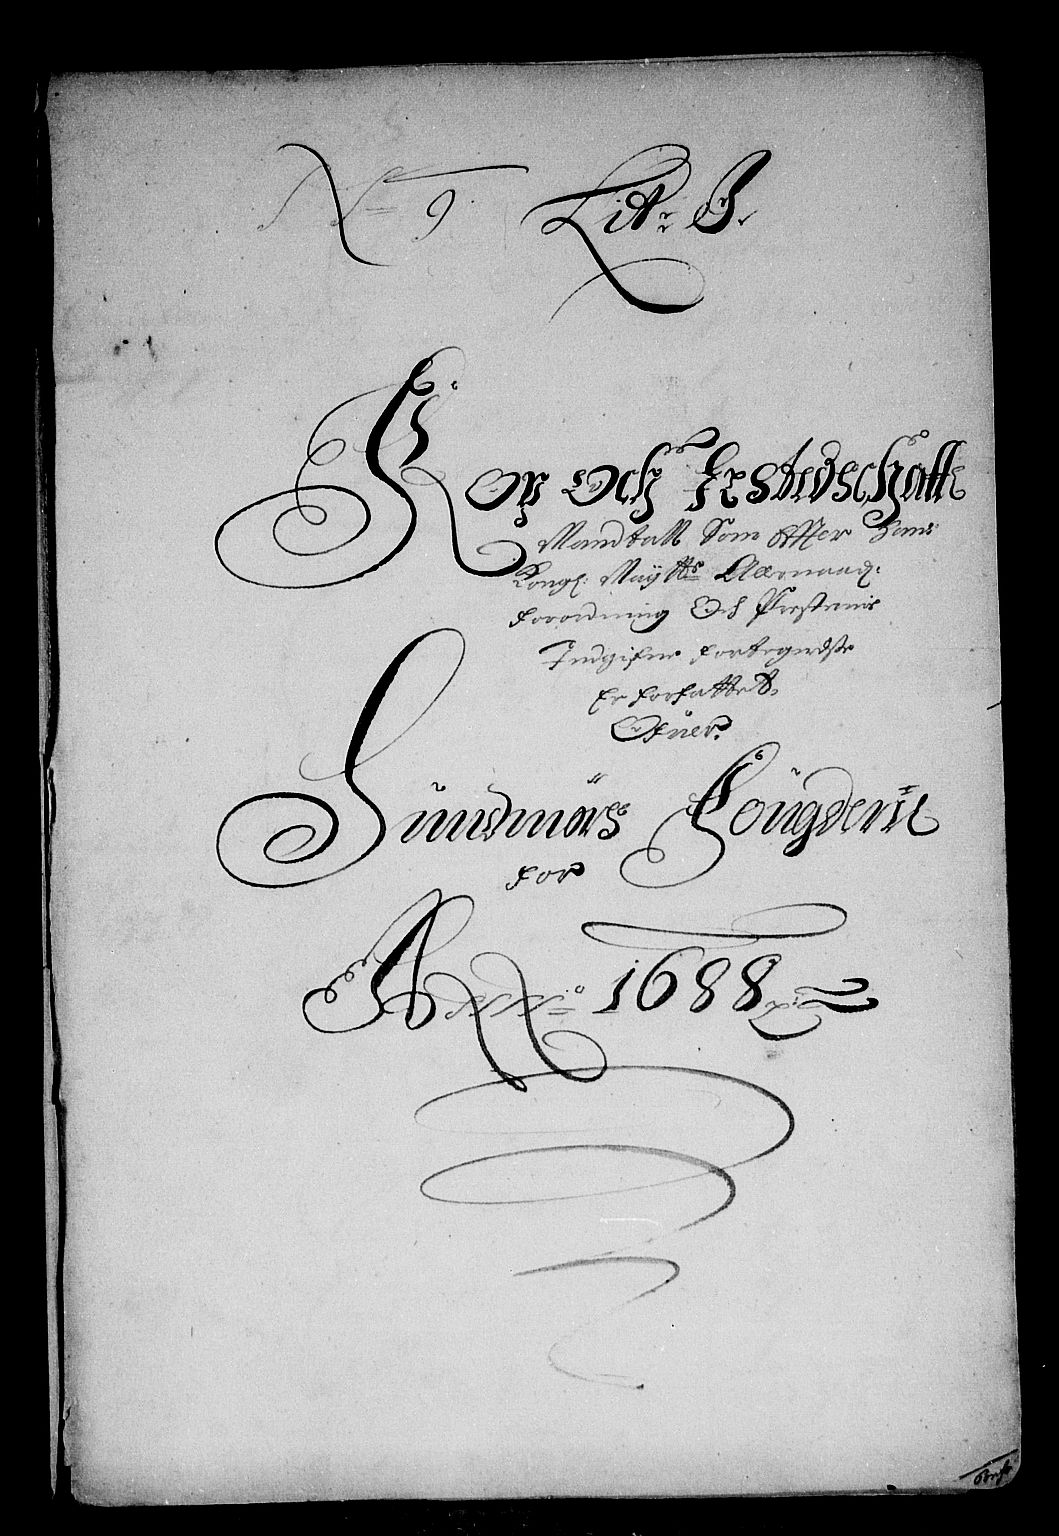 No 9. Litr: J:
Kop och Ixstedschatt
Mandtall Som Effter Hans
Kongl: Maÿtts Allernaad:
forordning Och Presternis
Indgifne fortegnelse
Er forfattet,
Ofuer.
Sundmörs Fougderie
for
Anno 1688